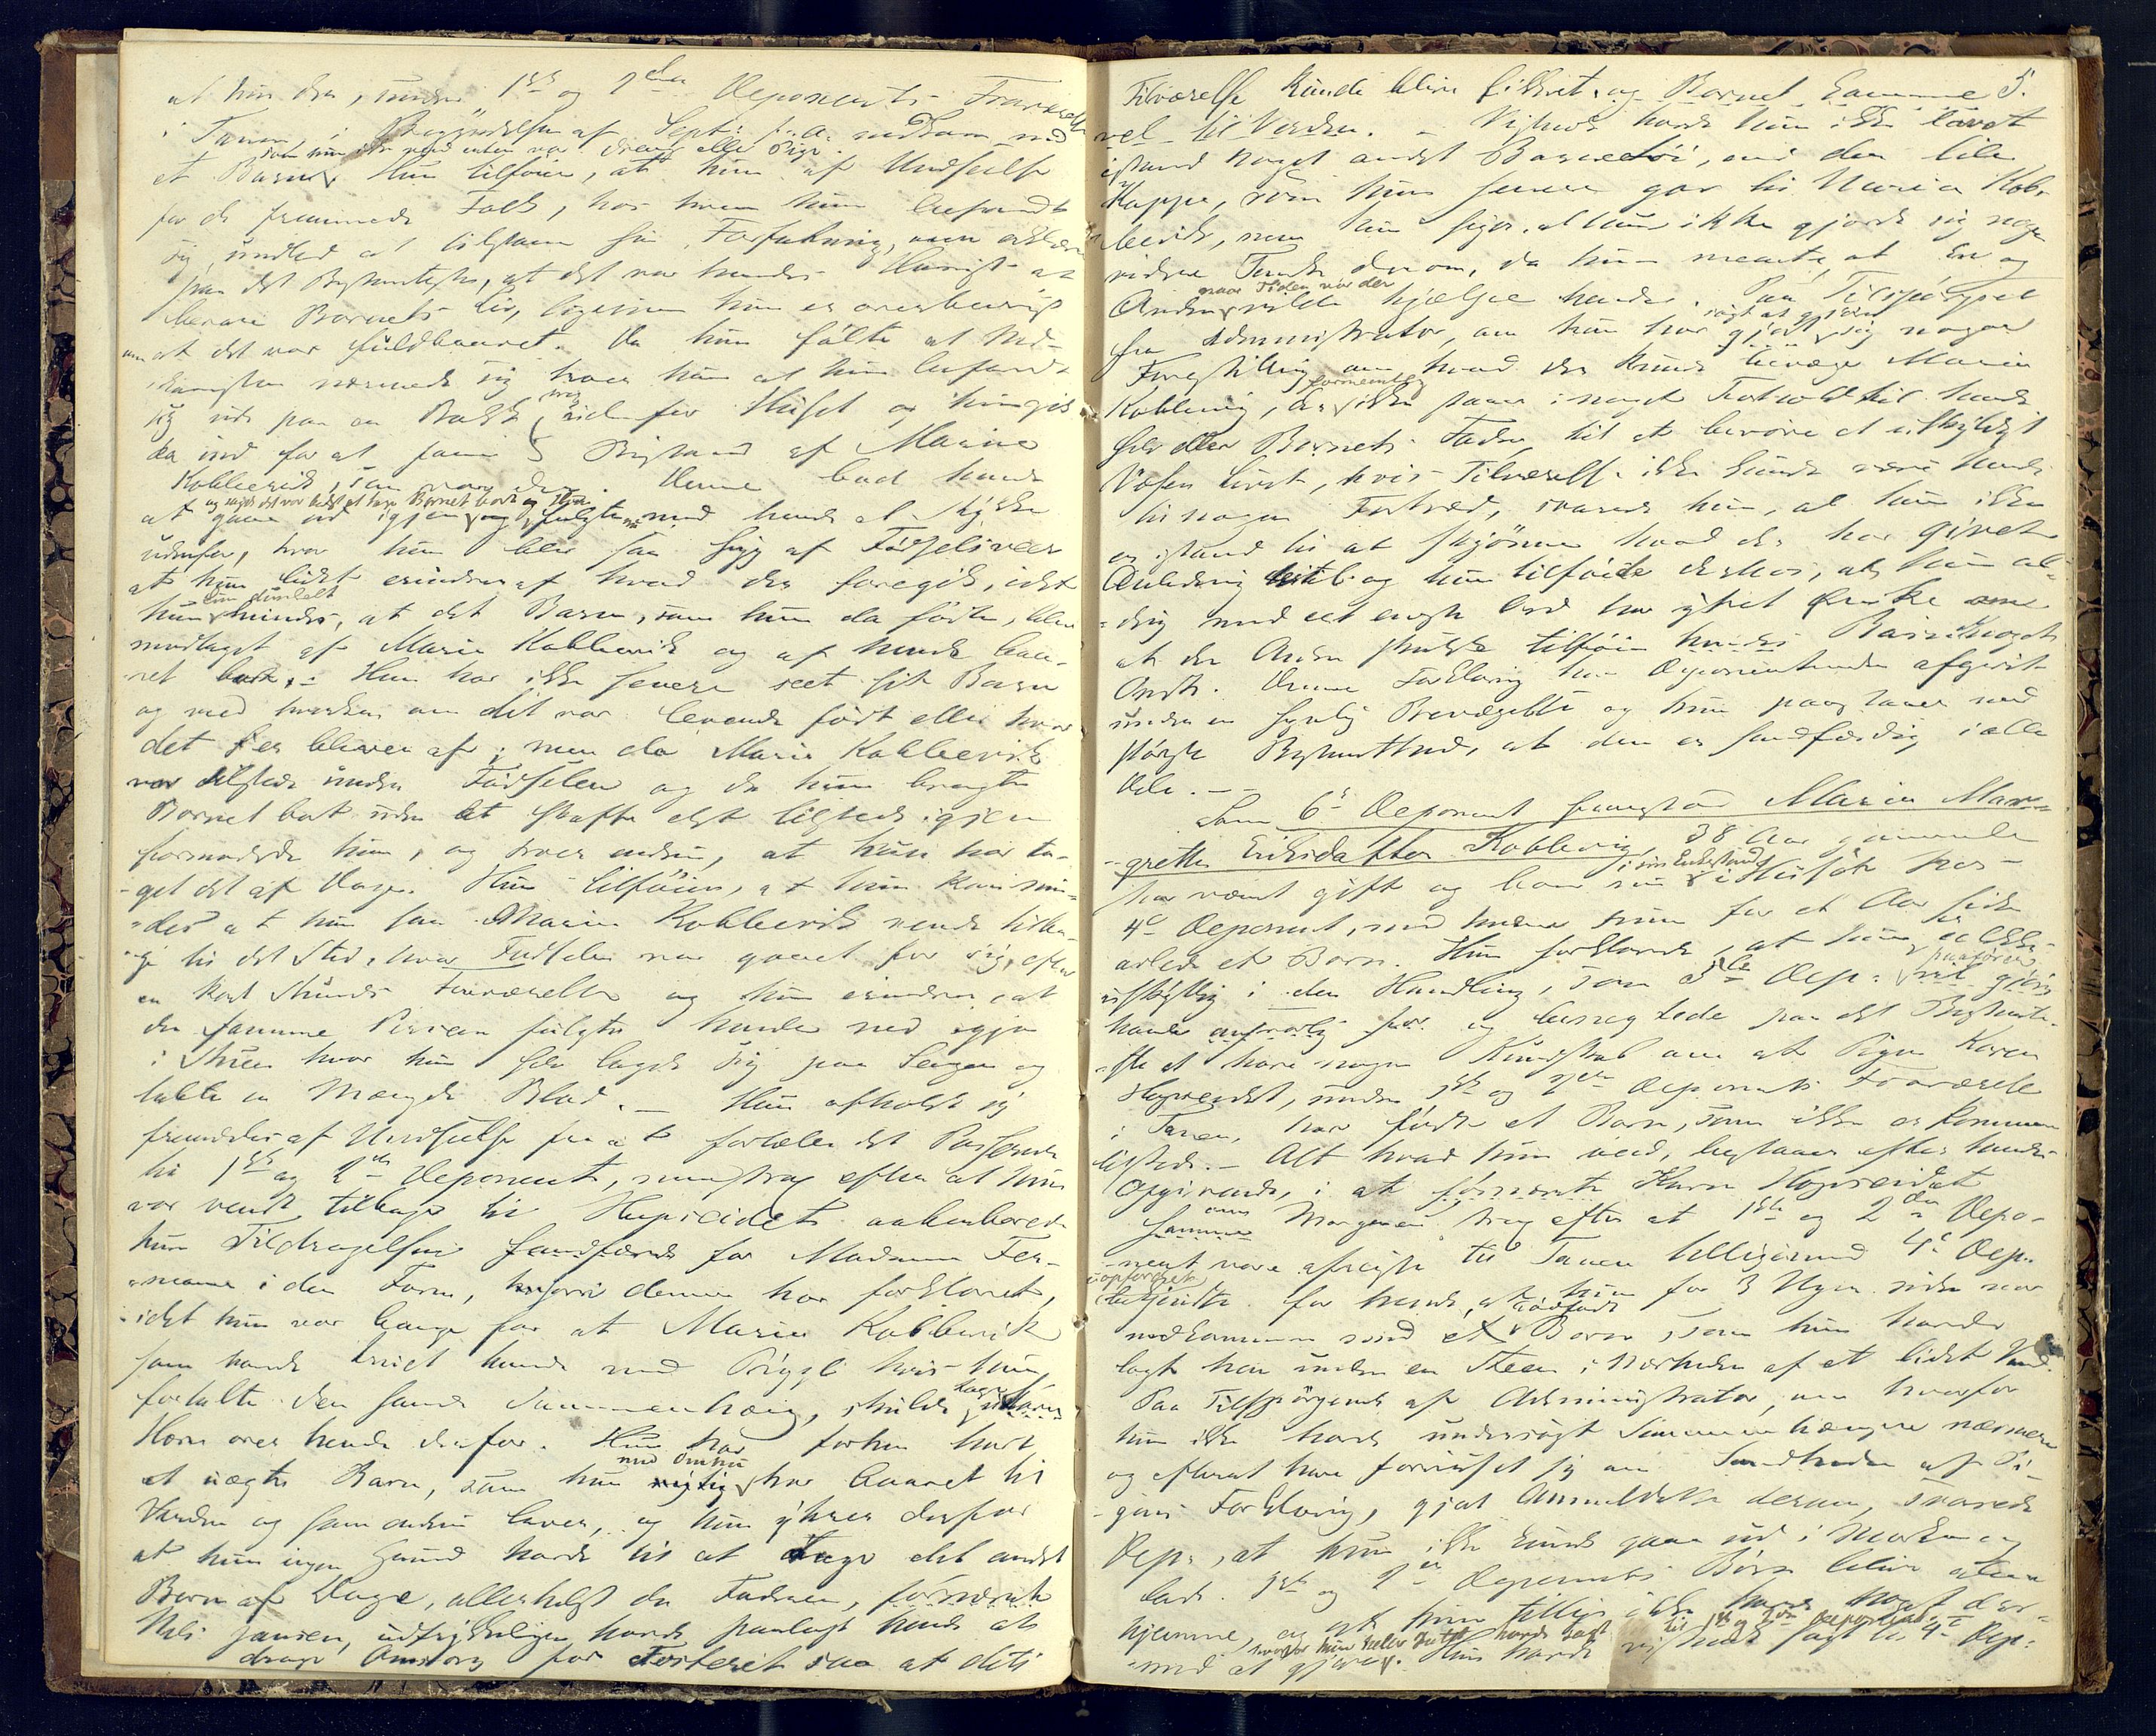 at hun der, under 1ste og 2den Deponents Fraværelse
i Tanen, i Begyndelsen af Septr f. A. nedkom med
et Barn, som hun ikke veed enten var Dreng eller Pige. Hun tilføier, at hun af Undseelse
for de fremmede Folk, hos hvem hun befandt
sig, undlod at tilstaae sin Forfatning, men erklærer
paa det Bestemteste, at det var hendes Hensigt at
bevare Barnets Liv, ligesom hun er overbeviist
om at det var fuldbaaret. Da hun følte at Ned-
komsten nærmede sig troer hun at hun befandt
sig ude paa en Bakke udenfor Huset og hun gik
da ind for at faae Bistand af Maria
Kobbevik, som var der. Denne bad hende
at gaae ud igjen og sagde det var bedst at tage Barnet bort og fulgte med hende et Stykke
udenfor, hvor hun blev saa syg af Fødselsveer
at hun lidet erindrer af hvad der foregik, idet
hun kun dunkelt mindes, at det Barn, som hun da fødte, blev
modtaget af Maria Kobbevik og af hende baa-
ret bort. Hun har ikke senere seet sit Barn
og veed hverken om det var levende født eller hvor
det er bleven af; men da Maria Kobbevik
var tilstede under Fødselen og da hun bragte
Barnet bort uden at skaffe det tilstede igjen
formodede hun, og troer endnu, at hun har ta-
get det af Dage. Hun tilføier, at hun kan min-
des at hun saa Maria Kobbevik vende tilba-
ge til det Sted, hvor Fødselen var gaaet for sig, efter
en kort Stunds Fraværelse og hun erindrer, at
den samme Person fulgte hende ned igjen
i Stuen hvor hun selv lagde sig paa Sengen og
tabte en Mængde Blod. – Hun afholdt sig
fremdeles af Undseelse fra at fortælle det Passerede
til 1ste og 2den Deponent, men strax efter at hun
var vendt tilbage til Hopseidet aabenbarede
hun Tildragelsen sandfærdig for Madame Fer-
mann i den Form, hvori denne har forklaret,
idet hun var bange for at Maria Kobbevik
som havde truet hende med Prygl hvis hun
fortalte den sande Sammenhæng, skulde tage
Hevn over hende derfor. Hun har forhen havt
et uægte Barn, som hun med Omhu har baaret til
Verden og som endnu lever, og hun yttrer derfor
at hun ingen Grund havde til at tage det andet
Barn af Dage, allerhelst da Faderen, førnævnte
Nils Jansen, udtrykkeligen havde paalagt hende at
drage Omsorg for Fosteret saa at dets
5.
Tilværelse kunde blive sikkret og Barnet komme
vel til Verden. – Vistnok havde hun ikke lavet
istand noget andet Barnetøi, end den lille
Kappe, som hun senere gav til Maria Kob-
bevik, men hun siger, at hun ikke gjorde sig nogen
videre Tanke derom, da hun meente, at En og
Anden vilde hjælpe hende naar Tiden var der. Paa Tilspørgsel
fra Administrator, om hun har søgt at gjøre sig nogen
Forestilling om hvad der kunde bevæge Maria
Kobbevig, der formentlig ikke staaer i noget Forhold til hende
selv eller Barnets Fader, til at berøve et uskyldigt
Væsen Livet, hvis Tilværelse ikke kunde være hende
til nogen Fortræd, svarede hun, at hun ikke
er istand til at skjønne hvad der har givet
Anledning hertil og hun tilføiede derhos, at hun al-
drig med et eneste Ord har yttret Ønske om
at den Anden skulde tilføie hendes Barn Noget
Ondt. Denne Forklaring har Deponentinden afgivet
under en synlig Bevægelse og hun paastaaer med
største Bestemthed, at den er sandfærdig i alle
Dele. –
Som 6te Deponent fremstod Maria Mar-
grethe Eriksdatter Kobbevig, 38 Aar gammel
har været gift og boer nu i sin Enkestand i Huset hos
4de Deponent, med hvem hun for et Aar siden
avlede et Barn. Hun forklarede, at hun er aldeles
uskyldig i den Handling, som 5te Dep: vil gjøre
hende ansvarlig for og benegtede paa det Bestemte-
ste at have nogen Kundskab om at Pigen Karen
Hopseidet, under 1ste og 2den Deponents Fraværelse
i Tanen, har født et Barn, som ikke er kommen
tilstede. – Alt hvad hun veed, bestaaer efter hendes
Opgivende, i at førnævnte Karen Hopseidet
samme Morgenen strax efter at 1ste og 2den Depo-
nent vare afreiste til Tanen tilligemed 4de Dep.
uopfordret betroede for hende, at hun for 3 Uger siden var
nedkommen med et dødfødt Barn, som hun havde
lagt hen under en Steen i Nærheden af et lidet Vand.
Paa Tilspørgende af Administrator, om hvorfor
hun ikke havde undersøgt Sammenhængen nærmere
og efterat have forvisset sig om Sandheden af Pi-
gens Forklaring, gjort Anmeldelse derom, svarede
Dep:, at hun ikke kunde gaae ud i Marken og
lade 1ste og 2den Deponents Børn blive alene
hjemme, og at hun tillige ikke havde noget der-
med at gjøre, hvorfor hun heller Intet havde sagt til 1ste og 2den Deponent. Hun havde vistnok sagt til 4de Dep: